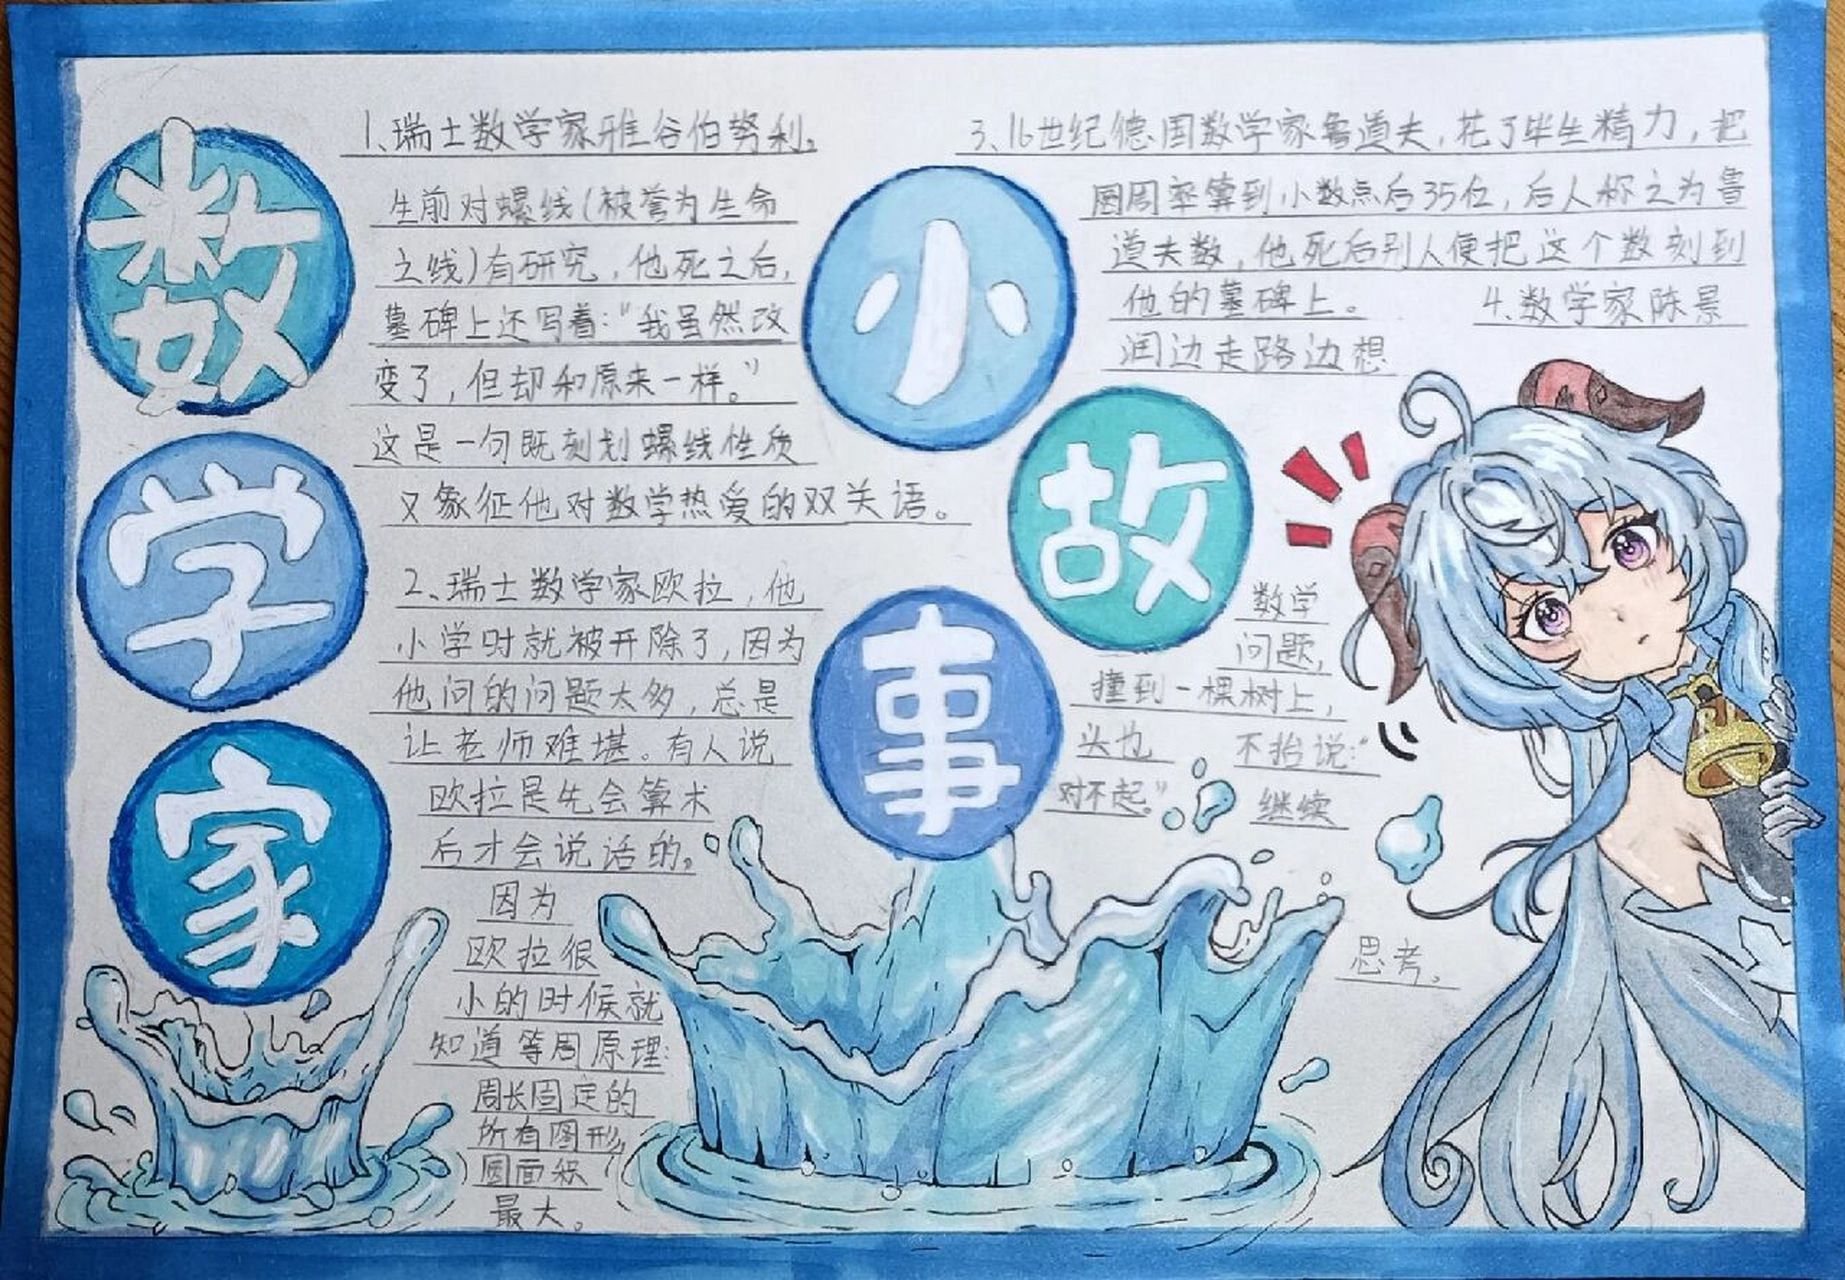 数
学
家
小
故
事
1、瑞士数学家雅谷伯努利。
生前对螺线(被誉为生命
之线)有研究，他死之后，
墓碑上还写着：“我虽然改
变了，但却和原来一样。”
这是一句既刻划螺线性质
又象征他对数学热爱的双关语。
2、瑞士数学家欧拉，他
小学时就被开除了，因为
他问的问题太多，总是
让老师难堪。有人说
欧拉是先会算术
后才会说话的。
因为
欧拉很
小的时候就
知道等周原理：
周长固定的
所有图形，
圆面积
最大。
3、16世纪德国数学家鲁道夫，花了毕生精力，把
圆周率算到小数点后35位，后人称之为鲁
道夫数，他死后别人便把这个数刻到
他的墓碑上。
4、数学家陈景
润边走路边想
数学
问题，
撞到一棵树上，
头也 不抬说：“
对不起。” 继续
思考。